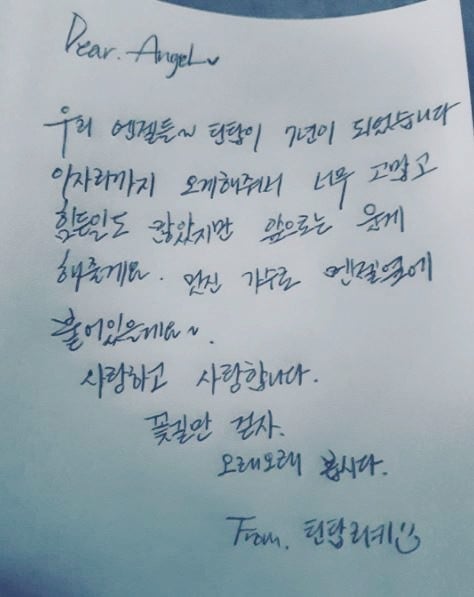 Dear. Angel
우리 엔젤들~ 틴탑이 7년이 되었습니다
이자리까지 오게해줘서 너무 고맙고
힘든일도 많았지만 앞으로는 웃게
해줄게요. 멋진 가수로 엔젤옆에
붙어있을게요~.
사랑하고 사랑합니다.
꽃길만 걷자.
오래오래 봅시다.
From. 틴탑리키